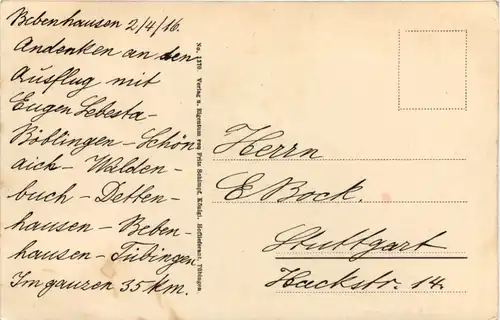 Bebenhausen 2/4/16.
Andenken an den
Ausflug mit
Eugen Sebesta-
Böblingen - Schön
aich - Walden-
buch - Detten-
hausen - Beben-
hausen - Tübingen
Im ganzen 35 km.
No. 1370 Verlag u. Eigentum von Fritz Schimpf, Königl. Hoflieferant, Tübingen.
Herrn
E Bock.
Stuttgart
Hackstr. 14.